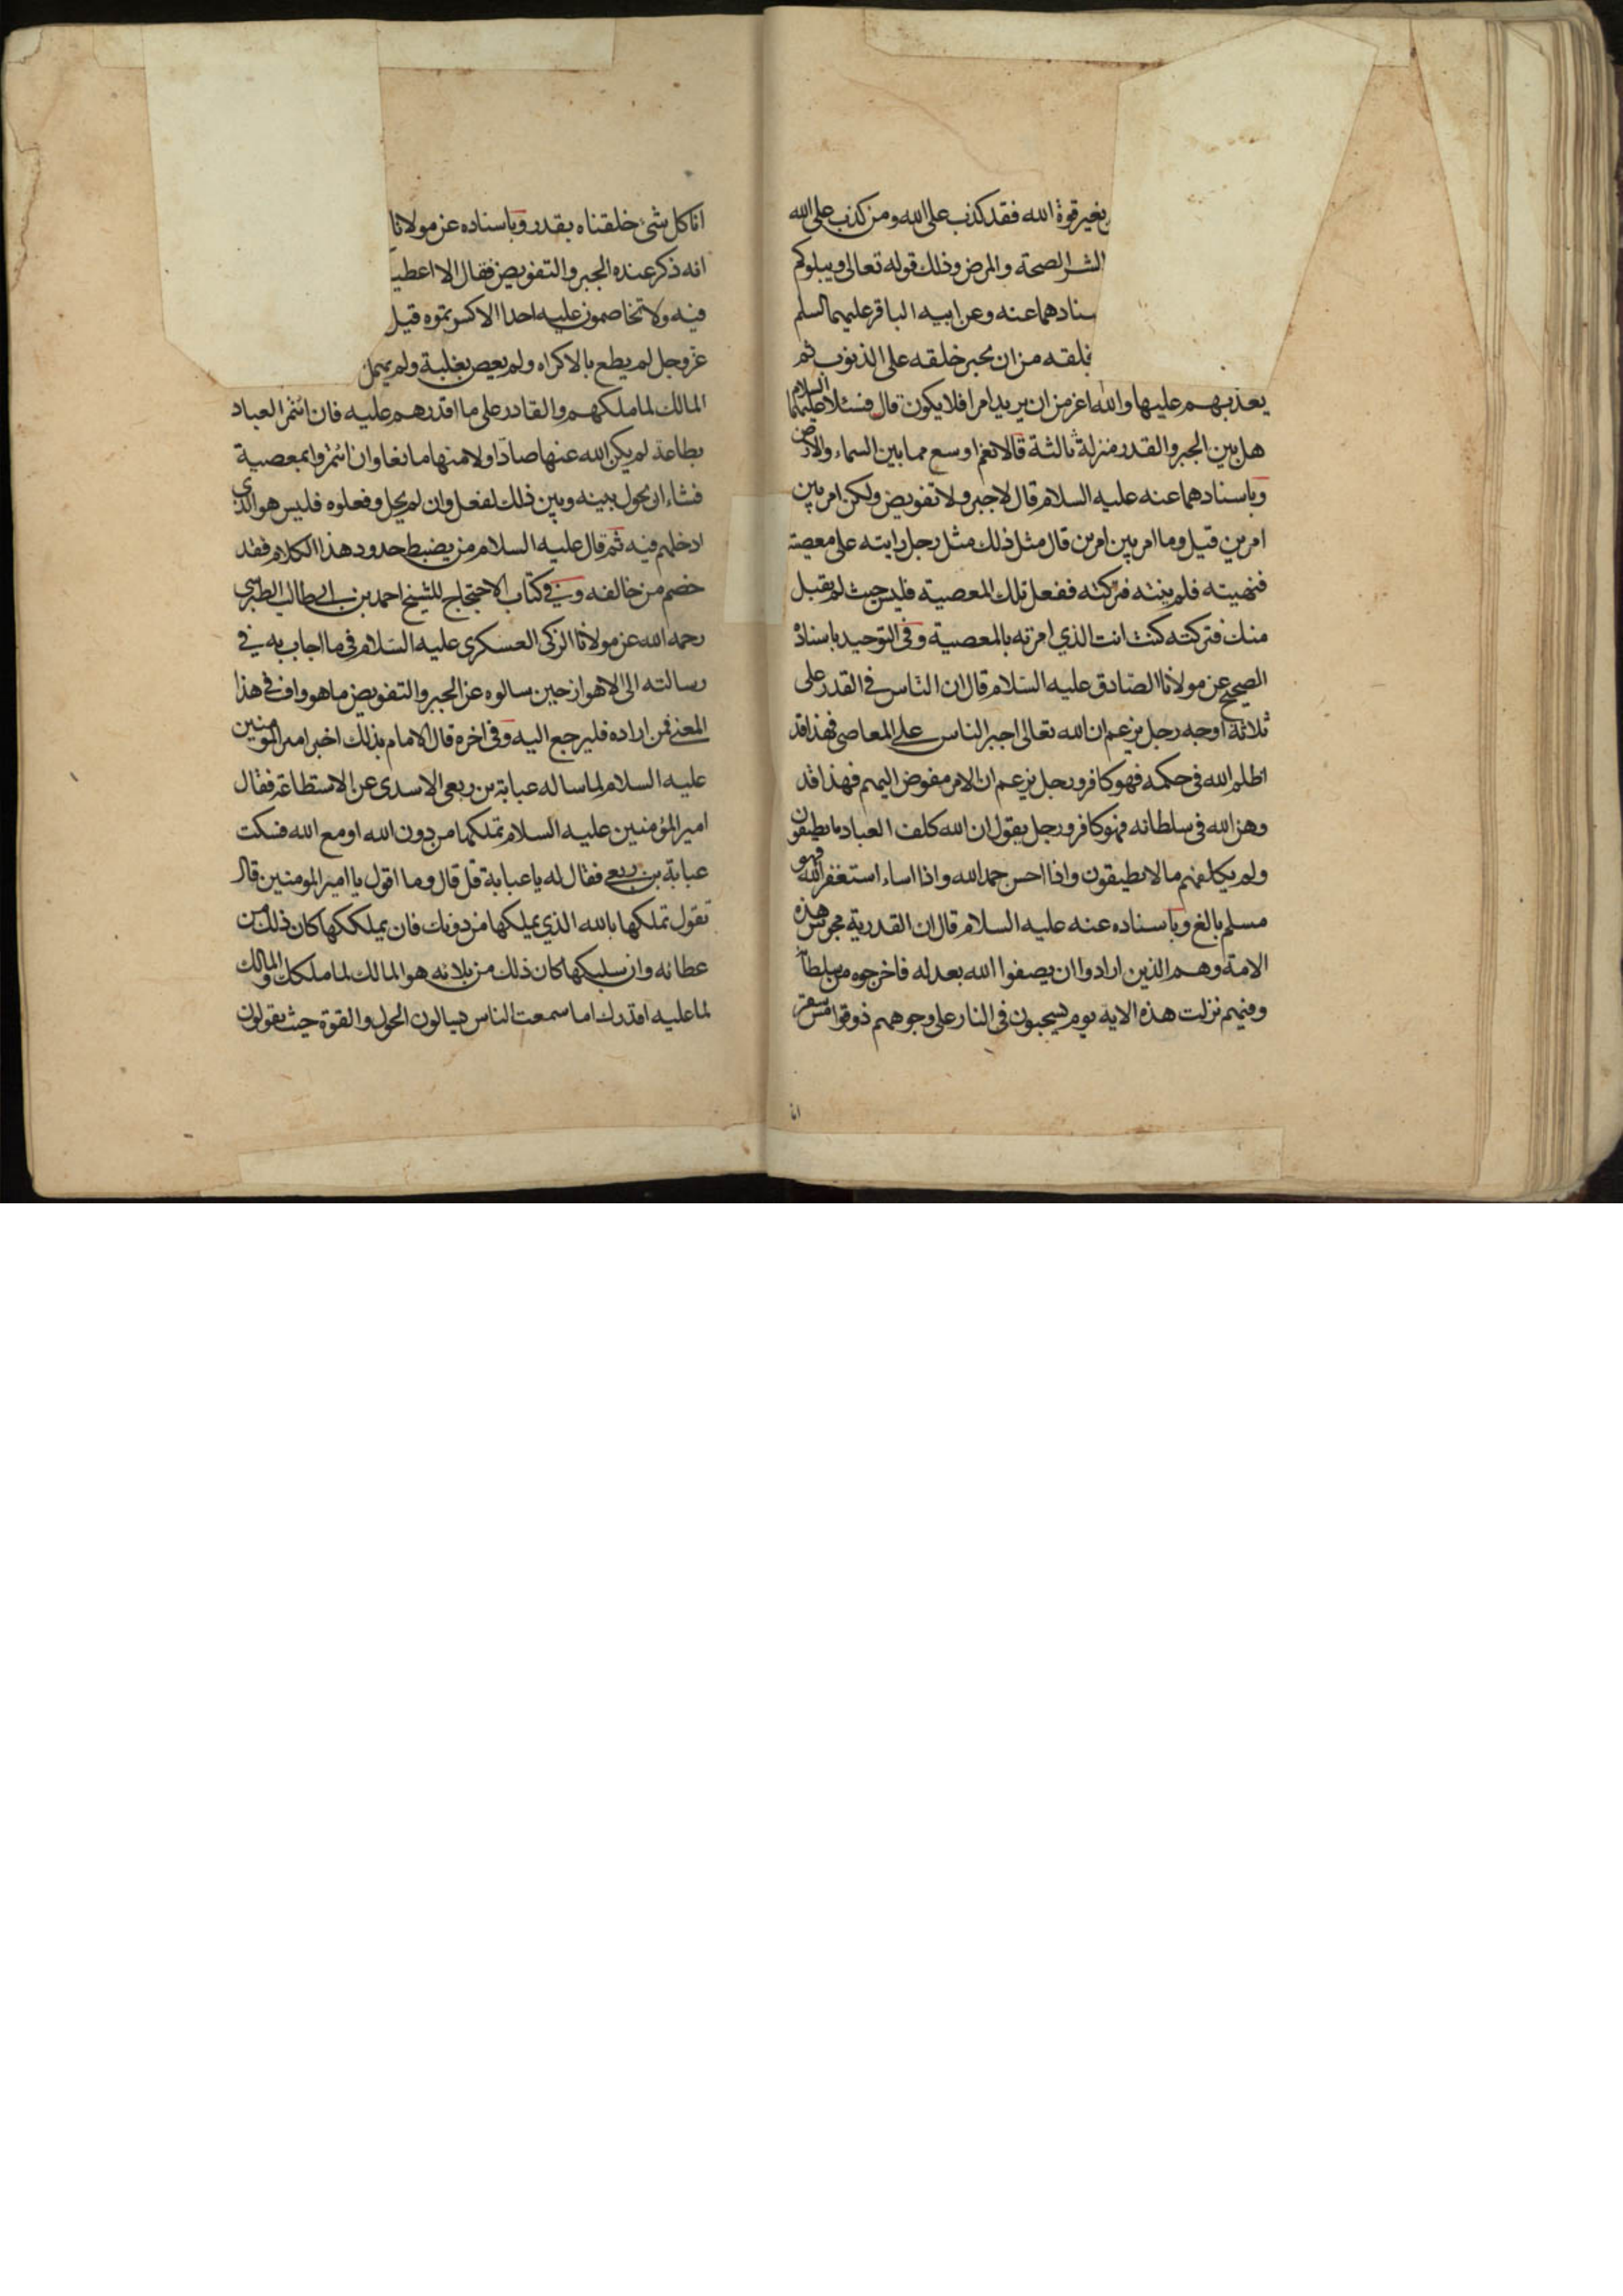 بغير قوة الله فقد كذب على الله ومن كذب على الله
الشر الصحة والمرض وذلك قوله تعالى ويبلوكم
سنادهما عنه وعن ابيه الباقر عليهما السلم
خلقه من ان يجبر خلقه على الذنوب ثم
يعذبهم عليها والله اعز من ان يريد امرا فلا يكون قال فسئلا عليهما السلام
هل بين الجبر والقدر منزلة ثالثة قالا نعم اوسع مما بين السماء والارض
وباسنادهما عنه عليه السلام قال لا جبر ولا تفويض ولكن امر بين
امرين قيل وما امر بين امرين قال مثل ذلك مثل رجل رايته على معصية
فنهيته فلم ينته فتركته ففعل تلك المعصية فليس حيث لم يقبل
منك فتركته كنت انت الذي امرته بالمعصية وفي التوحيد باسناده
الصحيح عن مولانا الصادق عليه السلام قال ان الناس في القدر على
ثلاثة اوجه رجل يزعم ان الله تعالى اجبر الناس على المعاصي فهذا قد
اظلم الله في حكمه فهو كافر ورجل يزعم ان الامر مفوض اليهم فهذا قد
وهن الله في سلطانه فهو كافر ورجل يقول ان الله كلف العباد ما يطيقون
ولم يكلفهم ما لا يطيقون واذا احسن حمد الله واذا اساء استغفر الله فهو
مسلم بالغ وباسناده عنه عليه السلام قال ان القدرية مجوس هذه
الامة وهم الذين ارادوا ان يصفوا الله بعدله فاخرجوه من سلطانه
وفيهم نزلت هذه الاية يوم يسحبون في النار على وجوههم ذوقوا مس سقر
انا
انا كل شئ خلقناه بقدر وباسناده عن مولانا
انه ذكر عنده الجبر والتفويض فقال الا اعطيـ
فيه ولا تخاصمون عليه احدا الا كسرتموه قيل
عز وجل لم يطع بالاكراه ولم يعص بغلبة ولم يهمل
المالك لما ملكهم والقادر على ما اقدرهم عليه فان ائتمر العباد
بطاعة لم يكن الله عنها صادا ولا منها مانعا وان ائتمروا بمعصية
فشاء ان يحول بينه وبين ذلك لفعل وان لم يحل وفعلوه فليس هو الذي
ادخلهم فيه ثم قال عليه السلام من يضبط حدود هذا الكلام فقد
خصم من خالفه وفي كتاب الاحتجاج للشيخ احمد بن ابي طالب الطبرسي
رحمه الله عن مولانا الزكى العسكرى عليه السلام في ما اجاب به في
رسالته الى الاهواز حين سالوه عن الجبر والتفويض ما هو واف في هذا
المعنى فمن اراده فليرجع اليه وفي اخره قال الامام بذلك اخبر امير المومنين
عليه السلام لما ساله عباية بن ربعي الاسدى عن الاستطاعة فقال
امير المؤمنين عليه السلام تملكها من دون الله او مع الله فسكت
عباية بن ربعي فقال له يا عباية قل قال وما اقول يا امير المومنين قال
تقول تملكها بالله الذي يملكها من دونك فان يملككها كان ذلك من
عطائه وان سلبكها كان ذلك من بلائه هو المالك لما ملكك والمالك
لما عليه اقدرك اما سمعت الناس يسالون الحول والقوة حيث يقولون